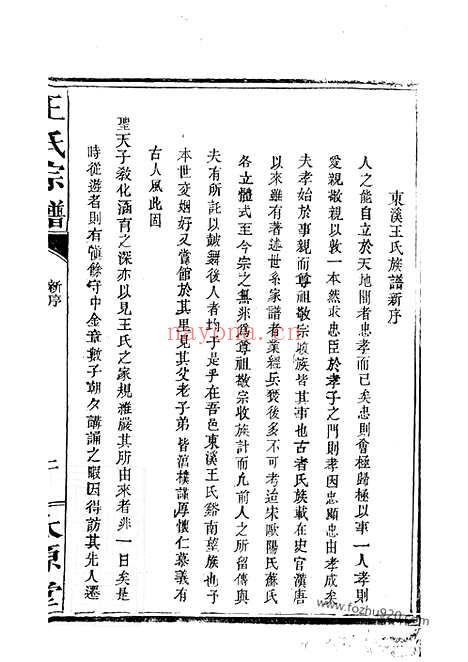 東溪王氏族譜新序
人之能自立於天地間者忠孝而已矣忠則會極歸極以事一人孝則
愛親敬親以敦一本然求忠臣於孝子之門則孝因忠顯忠由孝成矣
夫孝始於事親而尊祖敬宗收族皆其事也古者氏族載在史官漢唐
以來雖有著述世系家譜者業經兵燹後多不可考迨宋歐陽氏蘇氏
各立體式至今宗之無非爲尊祖敬宗收族計而凡前人之所留傳與
夫有所託以鼓舞後人者於是乎在吾邑東溪王氏谿南望族也予與
本世交姻好又嘗館於其家見其父老子弟皆渾樸謹厚懷仁慕義有
古人風此固
聖天子敎化涵育之深亦以見王氏之家規雅嚴其所由來者非一日矣是
時從遊者則有愼餘守中金章數子朝夕講誦之暇因得訪其先人遷
王氏宗譜
新序
一
太原堂
nayona.cn
www.fozhu920.com